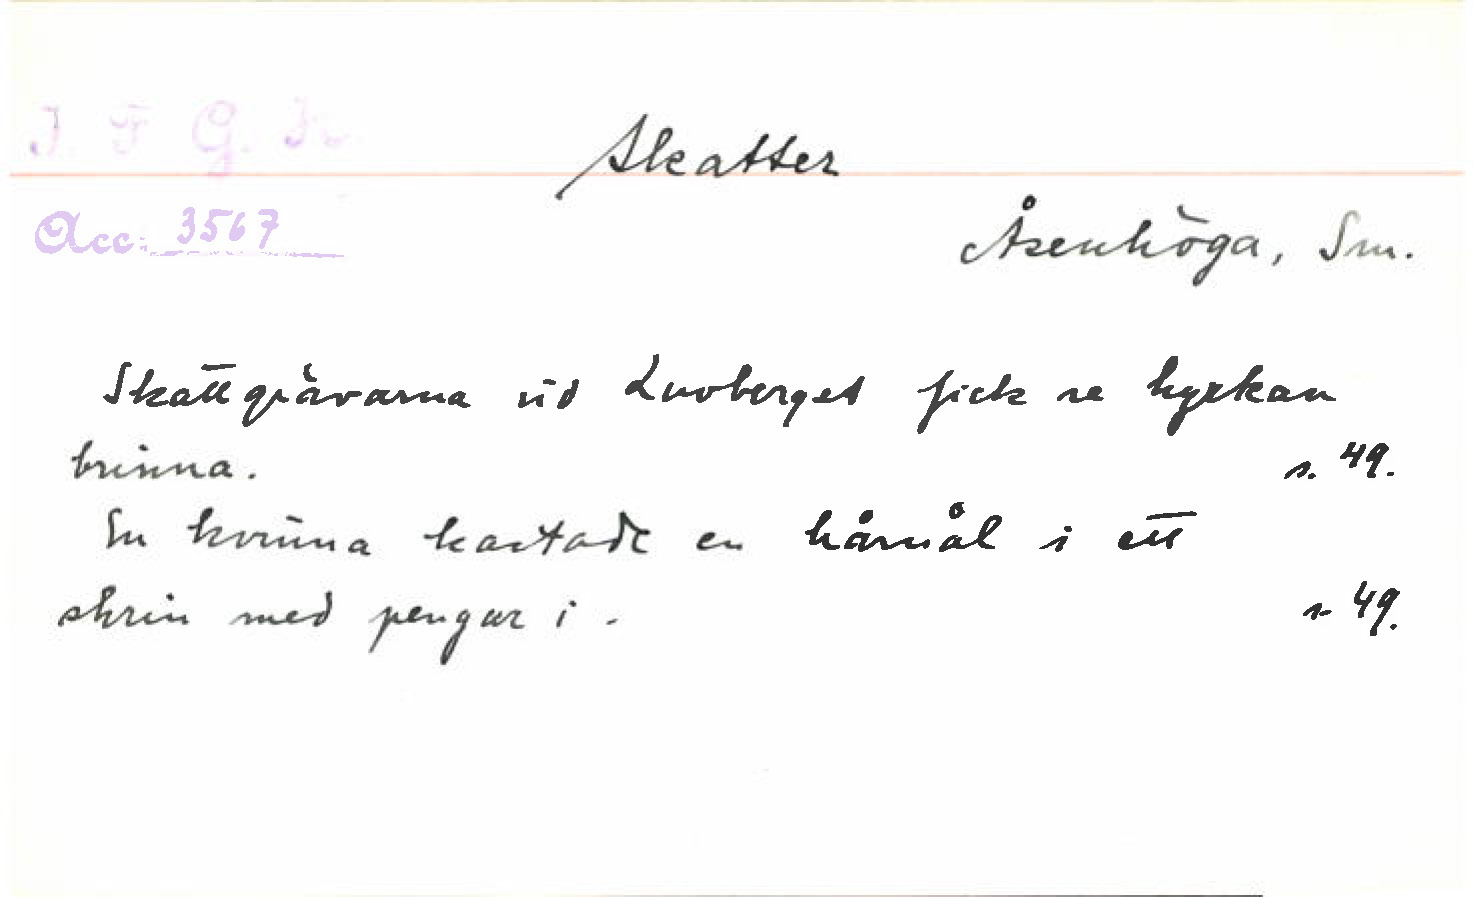 I. F. G. H.
Skatter
Acc. 3567
Åsenhöga, Sm.
Skattgrävarna vid Luoberget fick se kyrkan
brinna. s. 49.
En kvinna kastade en hårnål i ett
skrin med pengar i. s. 49.